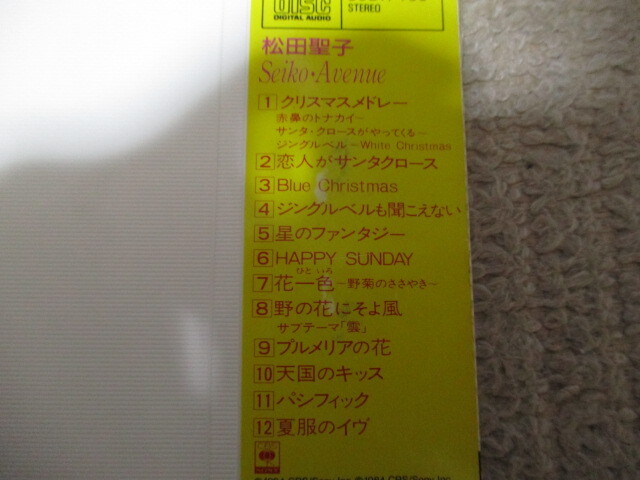 DISC
DIGITAL AUDIO
STEREO
松田聖子
Seiko・Avenue
1 クリスマスメドレー
赤鼻のトナカイ〜
サンタ・クロースがやってくる〜
ジングルベル〜White Christmas
2 恋人がサンタクロース
3 Blue Christmas
4 ジングルベルも聞こえない
5 星のファンタジー
6 HAPPY SUNDAY
ひと いろ
7 花一色〜野菊のささやき〜
8 野の花にそよ風
サブテーマ「雲」
9 プルメリアの花
10 天国のキッス
11 パシフィック
12 夏服のイヴ
CBS
SONY